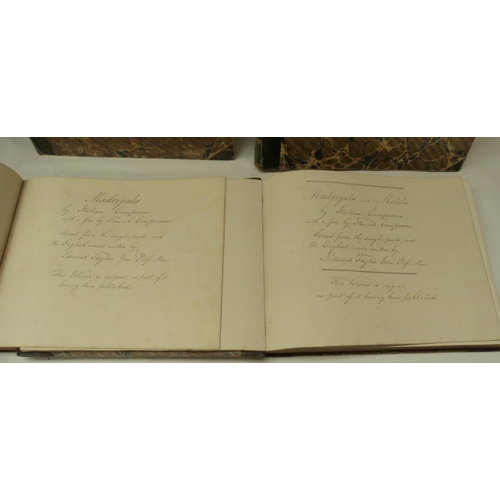 Madrigals
by Italian Composers
with a few by Flemish Composers
Scored from the single parts, and
the English words written by
Edward Taylor Gres. Prof. Mus.
This Volume is unique, no part of it
having been published.
Madrigals and Motets
by Italian Composers
with a few by Flemish Composers
Scored from the single parts, and
the English words written by
Edward Taylor Gres. Prof. Mus.
This Volume is unique,
no part of it having been published.